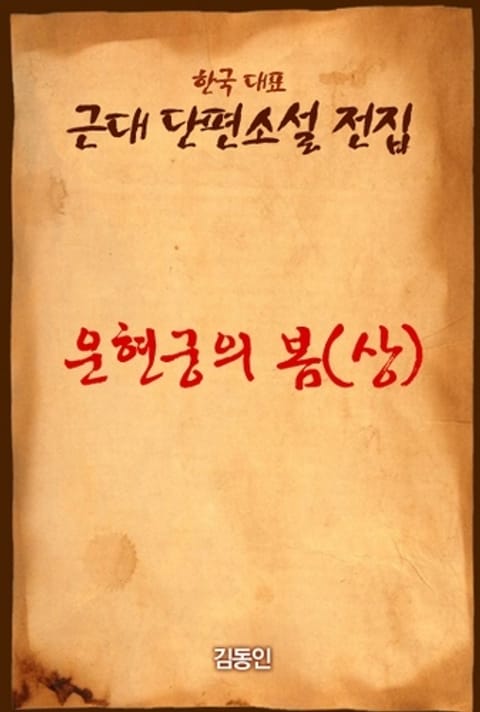 한국 대표
근대 단편소설 전집
운현궁의 봄(상)
김동인